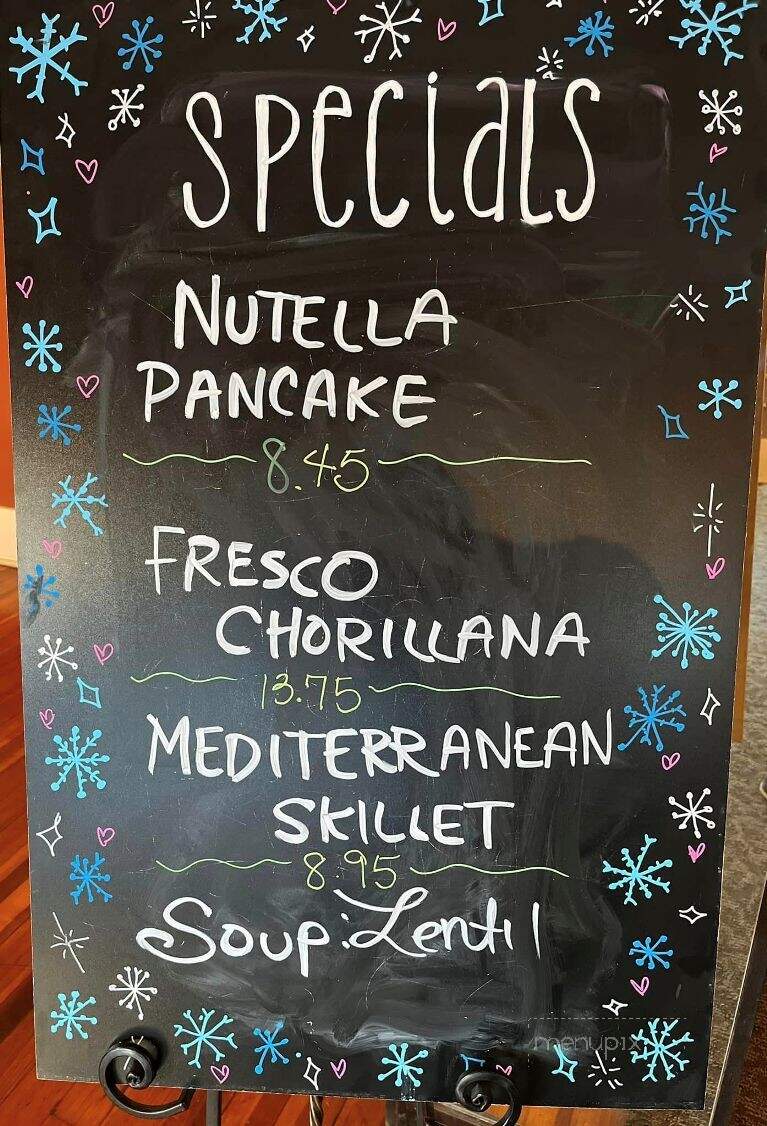 SPeciaLS
NUTELLA
PANCAKE
8.45
FRESCO
CHORILLANA
13.75
MEDITERRANEAN
SKILLET
8.95
Soup: Lentil
menupix